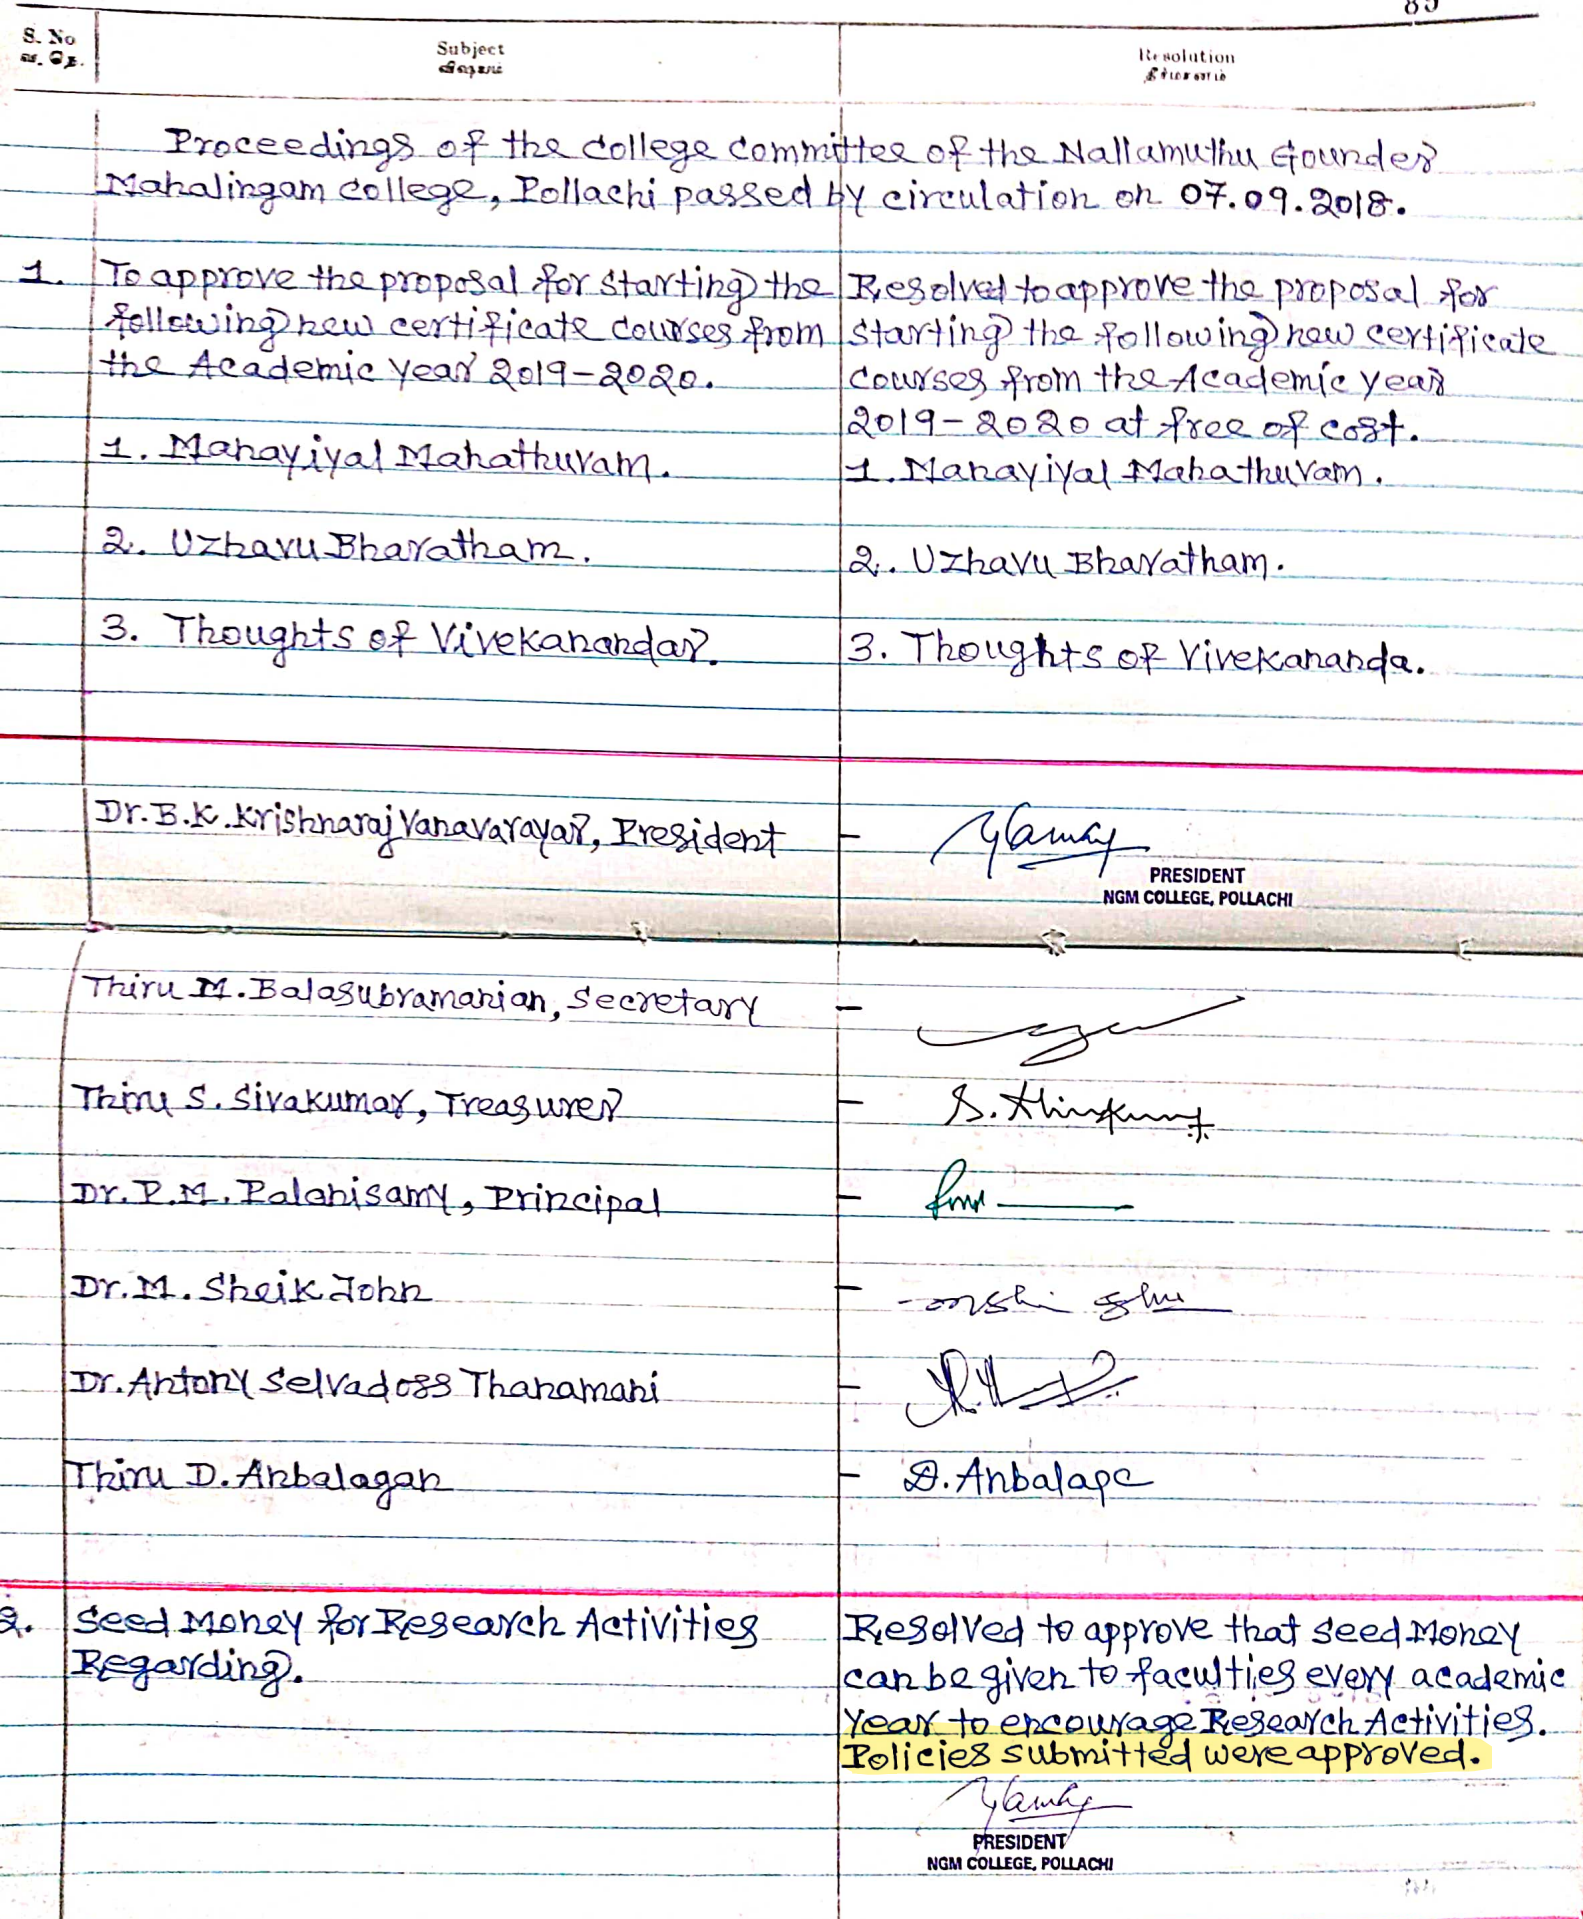 S. No
வ. நெ.
Subject
விஷயம்
Resolution
தீர்மானம்
Proceedings of the college committee of the Nallamuthu Gounder
Mahalingam college, Pollachi passed by circulation on 07.09.2018.
1. To approve the proposal for starting the
following new certificate courses from
the Academic year 2019-2020.
1. Manayiyal Mahathuvam.
2. Uzhavu Bharatham.
3. Thoughts of Vivekanandar.
Resolved to approve the proposal for
starting the following new certificate
courses from the Academic year
2019-2020 at free of cost.
1. Manayiyal Mahathuvam.
2. Uzhavu Bharatham.
3. Thoughts of Vivekananda.
Dr. B.K. Krishnaraj Vanavarayar, President -
PRESIDENT
NGM COLLEGE, POLLACHI
Thiru M. Balasubramanian, Secretary -
Thiru S. Sivakumar, Treasurer -
Dr. P.M. Palanisamy, Principal -
Dr. M. Sheik John -
Dr. Antony Selvadoss Thanamani -
Thiru D. Anbalagan - D. Anbalaga
2. Seed Money for Research Activities
Regarding.
Resolved to approve that seed Money
can be given to faculties every academic
year to encourage Research Activities.
Policies submitted were approved.
PRESIDENT
NGM COLLEGE, POLLACHI